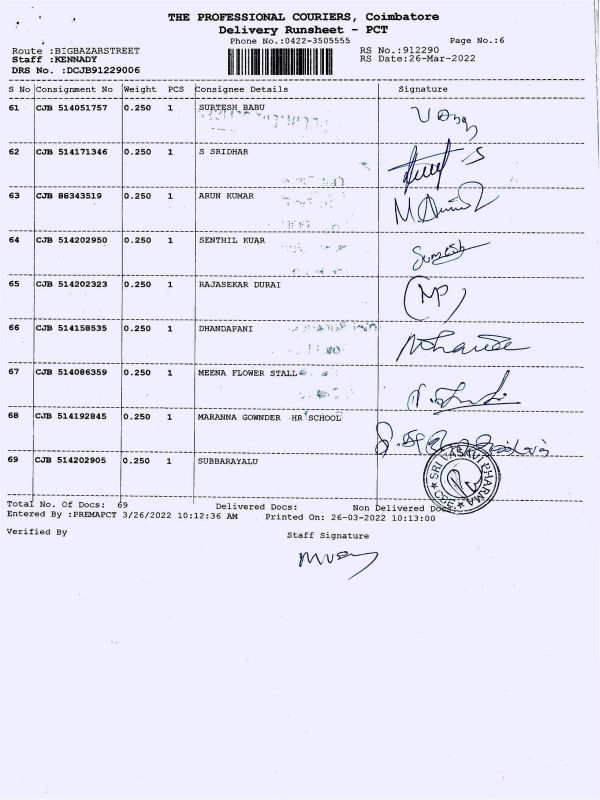 THE PROFESSIONAL COURIERS, Coimbatore
Delivery Runsheet - PCT
Phone No.:0422-3505555 Page No.:6
Route :BIGBAZARSTREET RS No.:912290
Staff :KENNADY RS Date:26-Mar-2022
DRS No. :DCJB91229006
S No Consignment No Weight PCS Consignee Details Signature
61 CJB 514051757 0.250 1 SURTESH BABU
62 CJB 514171346 0.250 1 S SRIDHAR
63 CJB 86343519 0.250 1 ARUN KUMAR
64 CJB 514202950 0.250 1 SENTHIL KUAR
65 CJB 514202323 0.250 1 RAJASEKAR DURAI
66 CJB 514158535 0.250 1 DHANDAPANI
67 CJB 514086359 0.250 1 MEENA FLOWER STALL
68 CJB 514192845 0.250 1 MARANNA GOWNDER HR SCHOOL
69 CJB 514202905 0.250 1 SUBBARAYALU
SRI VASAVI PHARMA
Total No. Of Docs: 69 Delivered Docs: Non Delivered Docs:
Entered By :PREMAPCT 3/26/2022 10:12:36 AM Printed On: 26-03-2022 10:13:00
Verified By Staff Signature